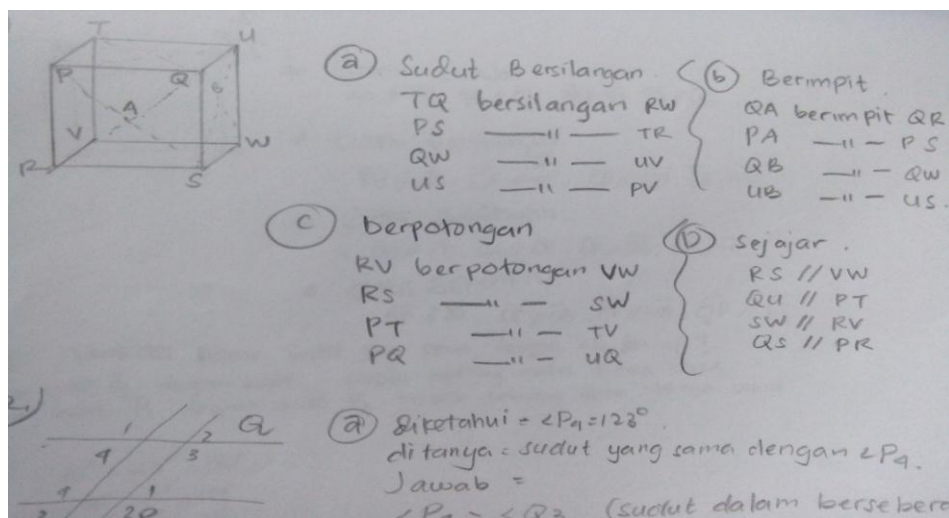 T U
P Q B
A
V W
R S
(a) Sudut Bersilangan
TQ bersilangan RW
PS —"— TR
QW —"— UV
US —"— PV
(b) Berimpit.
QA berimpit QR
PA —"— PS
QB —"— QW
UB —"— US.
(c) berpotongan
RV berpotongan VW
RS —"— SW
PT —"— TV
PQ —"— UQ
(D) Sejajar.
RS // VW
QU // PT
SW // RV
QS // PR
2.)
1 2 Q
4 3
1
(a) Diketahui = <P4=123°.
ditanya = sudut yang sama dengan <P4.
Jawab =
(sudut dalam